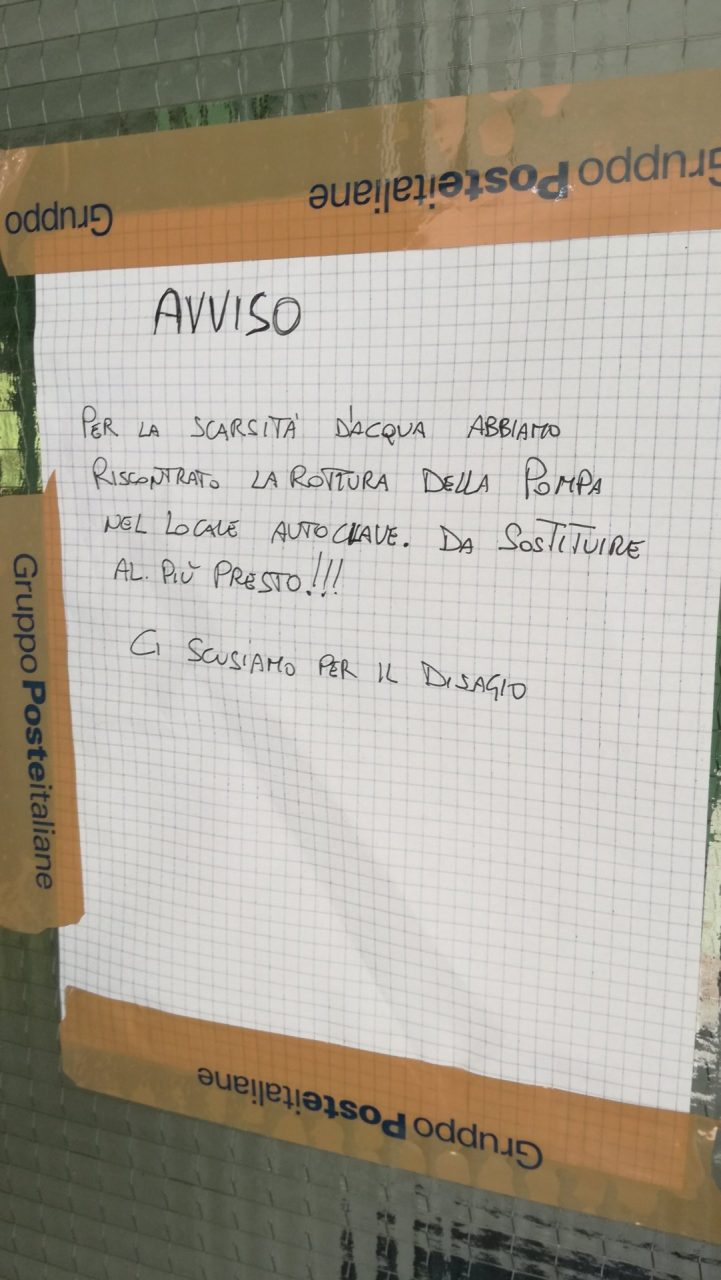 Gruppo Posteitaliane Gruppo
AVVISO
PER LA SCARSITÀ D'ACQUA ABBIAMO
RISCONTRATO LA ROTTURA DELLA POMPA
NEL LOCALE AUTOCLAVE. DA SOSTITUIRE
AL. PIÙ PRESTO!!!
CI SCUSIAMO PER IL DISAGIO
Gruppo Posteitaliane
Gruppo Posteitaliane